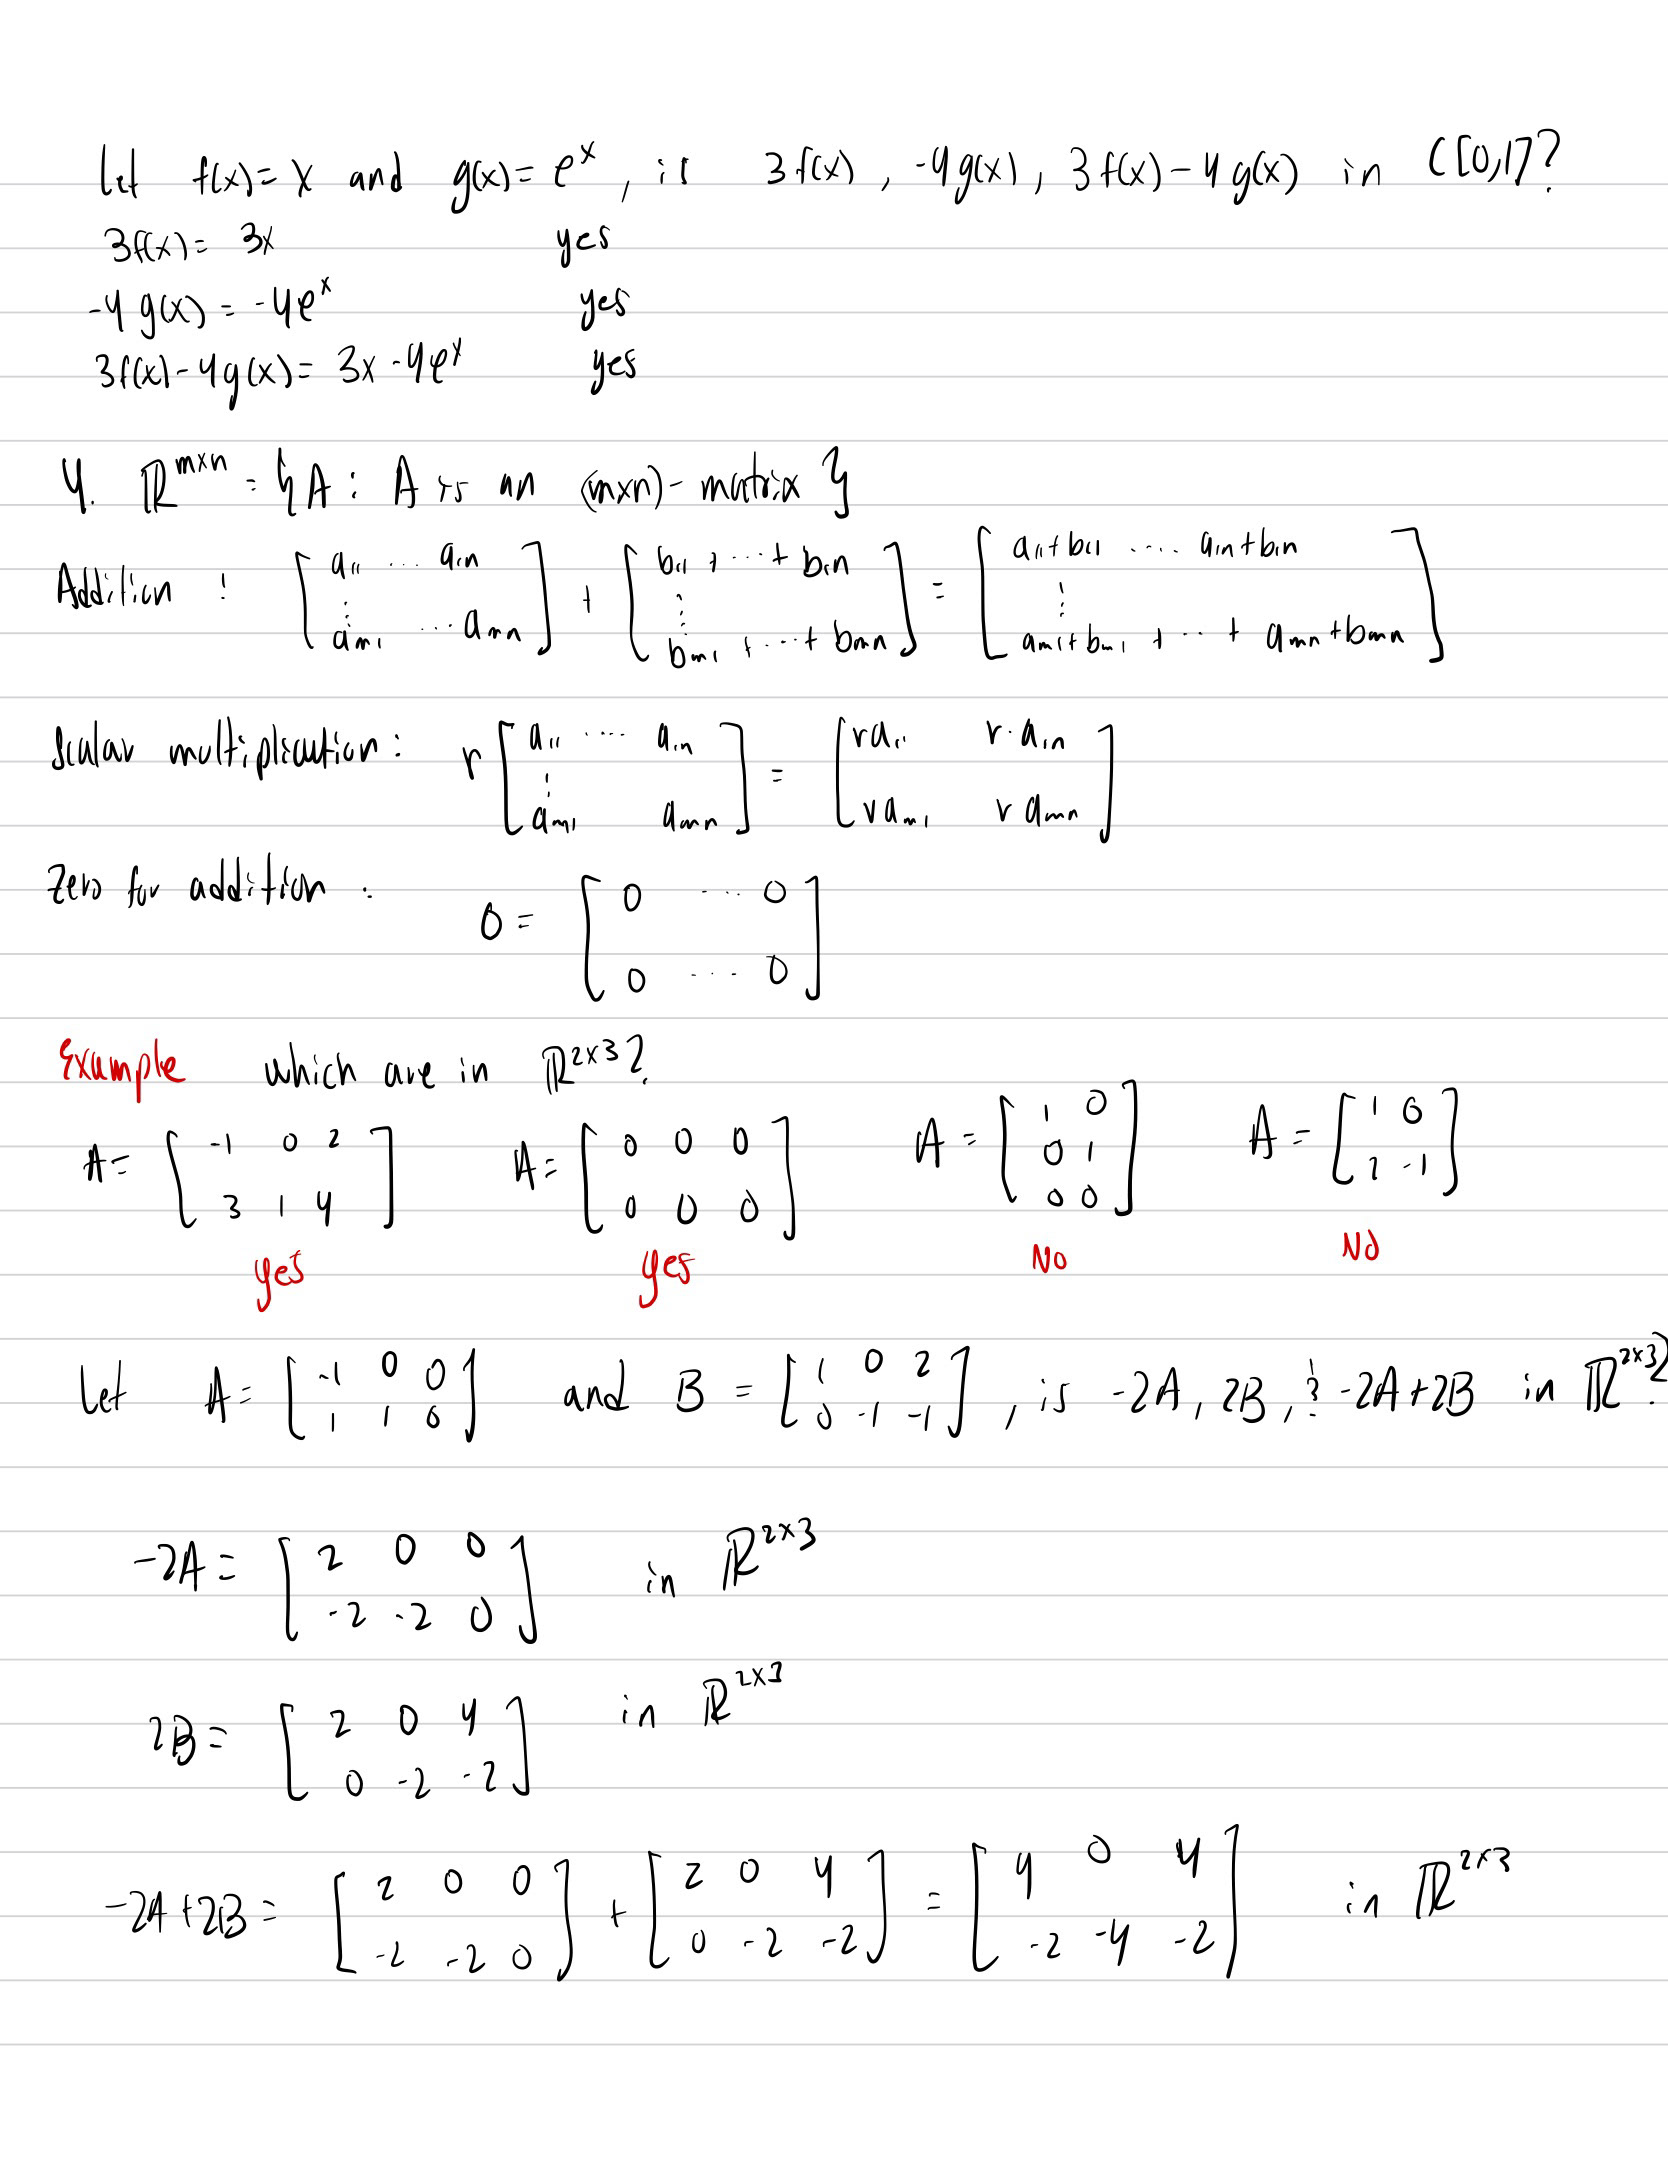 Let f(x) = x and g(x) = e^x, is 3f(x), -4g(x), 3f(x)-4g(x) in C[0,1]?
3f(x) = 3x yes
-4g(x) = -4e^x yes
3f(x)-4g(x) = 3x-4e^x yes
4. ℝ^{m×n} = {A : A is an (m×n)-matrix}
Addition : [a_11 ... a_1n; ⋮; a_m1 ... a_mn] + [b_11 + ... + b_1n; ⋮; b_m1 + ... + b_mn] = [a_11+b_11 .... a_1n+b_1n; ⋮; a_m1+b_m1 + ... + a_mn+b_mn]
Scalar multiplication : r [a_11 .... a_1n; ⋮; a_m1 a_mn] = [ra_11 r·a_1n; ra_m1 ra_mn]
Zero for addition : 0 = [0 ... 0; 0 ... 0]
Example which are in ℝ^{2×3}?
A = [-1 0 2; 3 1 4] A = [0 0 0; 0 0 0] A = [1 0; 0 1; 0 0] A = [1 0; 2 -1]
yes yes No No
Let A = [-1 0 0; 1 1 0] and B = [1 0 2; 0 -1 -1], is -2A, 2B, & -2A+2B in ℝ^{2×3}?
-2A = [2 0 0; -2 -2 0] in ℝ^{2×3}
2B = [2 0 4; 0 -2 -2] in ℝ^{2×3}
-2A+2B = [2 0 0; -2 -2 0] + [2 0 4; 0 -2 -2] = [4 0 4; -2 -4 -2] in ℝ^{2×3}